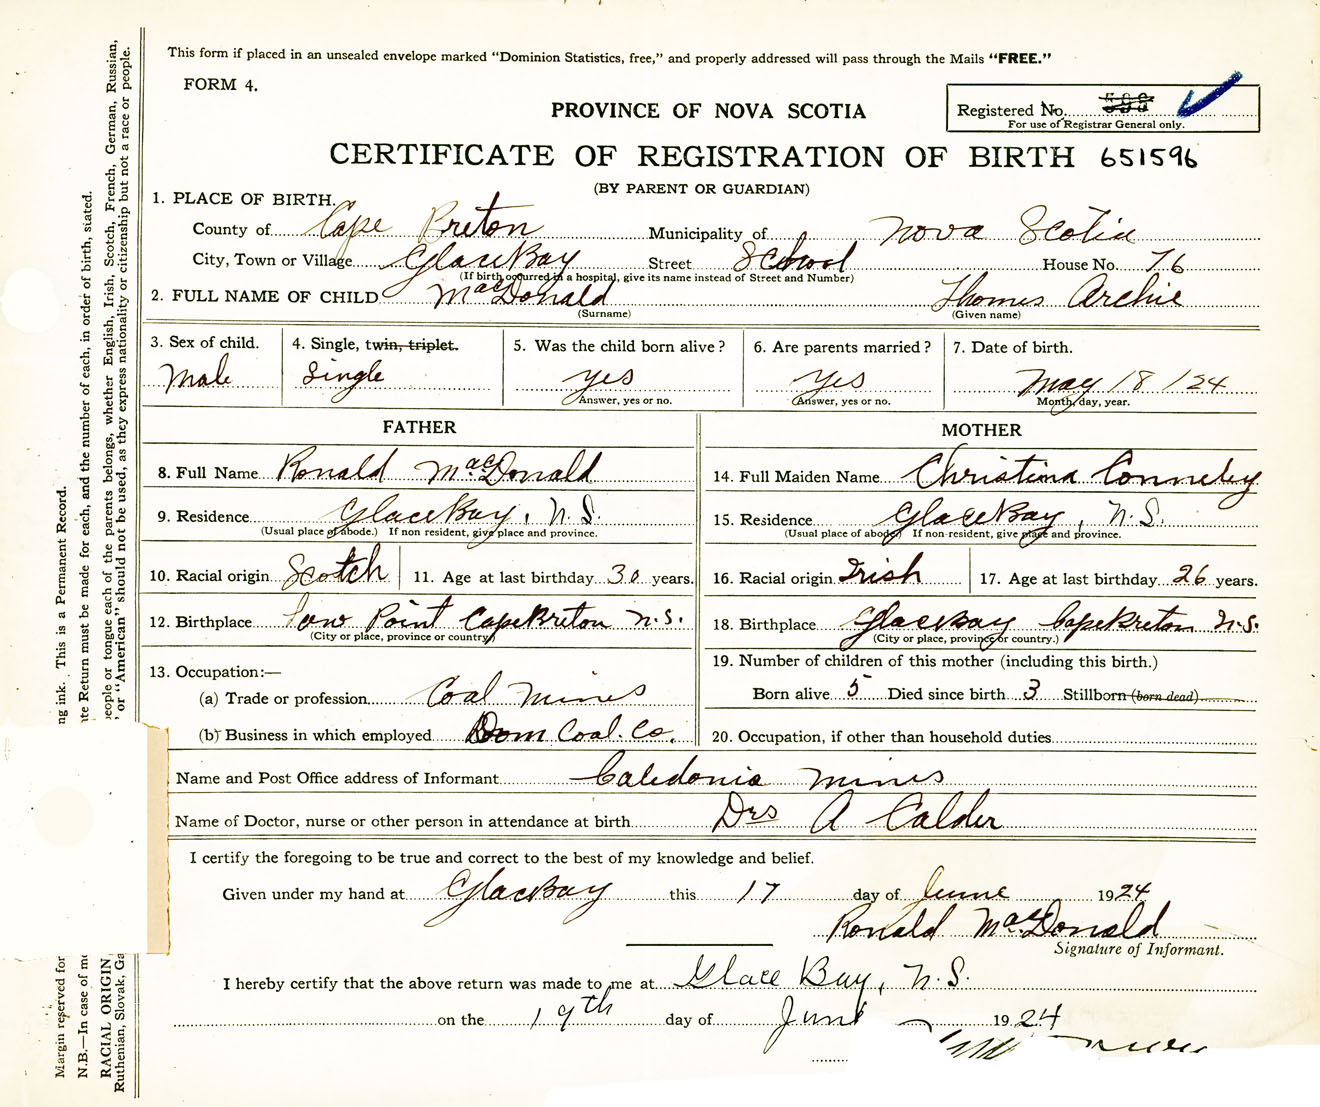 This form if placed in an unsealed envelope marked "Dominion Statistics, free," and properly addressed will pass through the Mails "FREE."
FORM 4.
PROVINCE OF NOVA SCOTIA
Registered No.
For use of Registrar General only.
CERTIFICATE OF REGISTRATION OF BIRTH 651596
(BY PARENT OR GUARDIAN)
1. PLACE OF BIRTH.
County of Cape Breton Municipality of Nova Scotia
City, Town or Village Glace Bay Street School House No. 76
(If birth occurred in a hospital, give its name instead of Street and Number)
2. FULL NAME OF CHILD MacDonald Thomes Archie
(Surname) (Given name)
3. Sex of child. 4. Single, twin, triplet. 5. Was the child born alive? 6. Are parents married? 7. Date of birth.
Male Single yes yes May 18 / 24
Answer, yes or no. Answer, yes or no. Month, day, year.
FATHER MOTHER
8. Full Name Ronald MacDonald 14. Full Maiden Name Christina
9. Residence Glace Bay, N.S. 15. Residence Glace Bay, N.S.
(Usual place of abode.) If non resident, give place and province. (Usual place of abode) If non-resident, give place and province.
10. Racial origin Scotch 11. Age at last birthday 30 years. 16. Racial origin Irish 17. Age at last birthday 26 years.
12. Birthplace Low Point Cape Breton N.S. 18. Birthplace Glace Bay Cape Breton N.S.
(City or place, province or country) (City or place, province or country.)
13. Occupation:— 19. Number of children of this mother (including this birth.)
(a) Trade or profession Coal Mines Born alive 5 Died since birth 3 Stillborn (born dead)
(b) Business in which employed Dom Coal. Co. 20. Occupation, if other than household duties
Name and Post Office address of Informant Caledonia Mines
Name of Doctor, nurse or other person in attendance at birth Drs A Calder
I certify the foregoing to be true and correct to the best of my knowledge and belief.
Given under my hand at Glace Bay this 17 day of June 1924
Ronald MacDonald
Signature of Informant.
I hereby certify that the above return was made to me at Glace Bay, N.S.
on the 19th day of June 1924
Margin reserved for
ng ink. This is a Permanent Record.
N.B.—In case of mo
te Return must be made for each, and the number of each, in order of birth, stated.
RACIAL ORIGIN
people or tongue each of the parents belongs, whether English, Irish, Scotch, French, German, Russian,
Ruthenian, Slovak, Ga
or "American" should not be used, as they express nationality or citizenship but not a race or people.